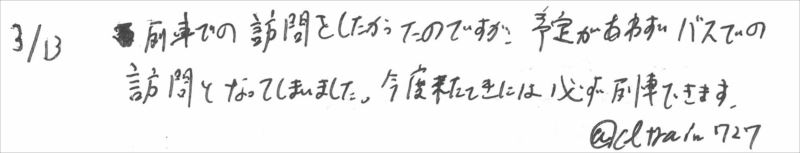 3/13 列車での訪問をしたかったのですが、予定があわずバスでの
訪問となってしまいました。今度来たときには必ず列車できます。
@cltrain727